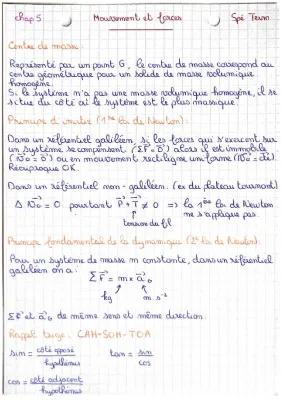 Chap 5 Mouvement et forces Spé Term
Centre de masse :
Représenté par un point G, le centre de masse correspond au
centre géométrique pour un solide de masse volumique
homogène.
Si le système n'a pas une masse volumique homogène, il se
situe du côté où le système est le plus massique.
Principe d'inertie (1ère loi de Newton) :
Dans un référentiel galiléen, si les forces qui s'exercent sur
un système se compensent (ΣF⃗ = 0⃗) alors il est immobile
(v⃗G = 0⃗) ou en mouvement rectiligne uniforme (v⃗G = cte).
Réciproque OK.
Dans un référentiel non-galiléen. (ex du plateau tournant)
Δ v⃗G = 0 pourtant P⃗ + T⃗ ≠ 0 => la 1ère loi de Newton
ne s'applique pas.
↑
tension du fil
Principe fondamental de la dynamique (2e loi de Newton) :
Pour un système de masse m constante, dans un référentiel
galiléen on a :
ΣF⃗ = m × a⃗G
kg m.s⁻²
ΣF⃗ et a⃗G de même sens et même direction.
Rappel trigo : CAH-SOH-TOA
sin = côté opposé / hypoténus tan = sin / cos
cos = côté adjacent / hypoténus